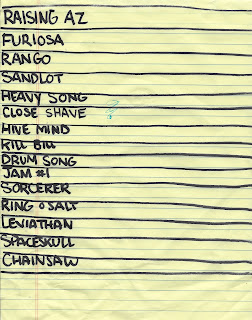 RAISING AZ
FURIOSA
RANGO
SANDLOT
HEAVY SONG
CLOSE SHAVE ?
HIVE MIND
KILL BILL
DRUM SONG
JAM #1
SORCERER
RING O SALT
LEVIATHAN
SPACESKULL
CHAINSAW